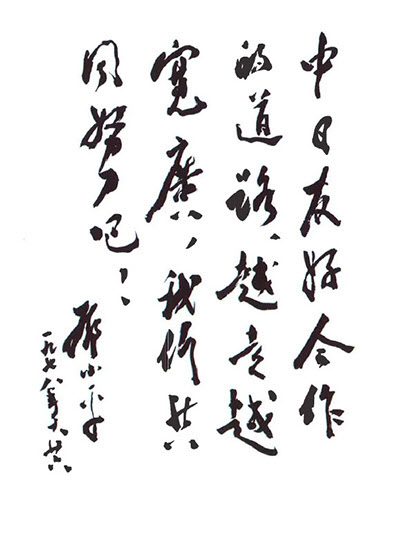 中日友好合作
的道路、越走越
寬廣，我们共
同努力吧！
邓小平
一九七八年